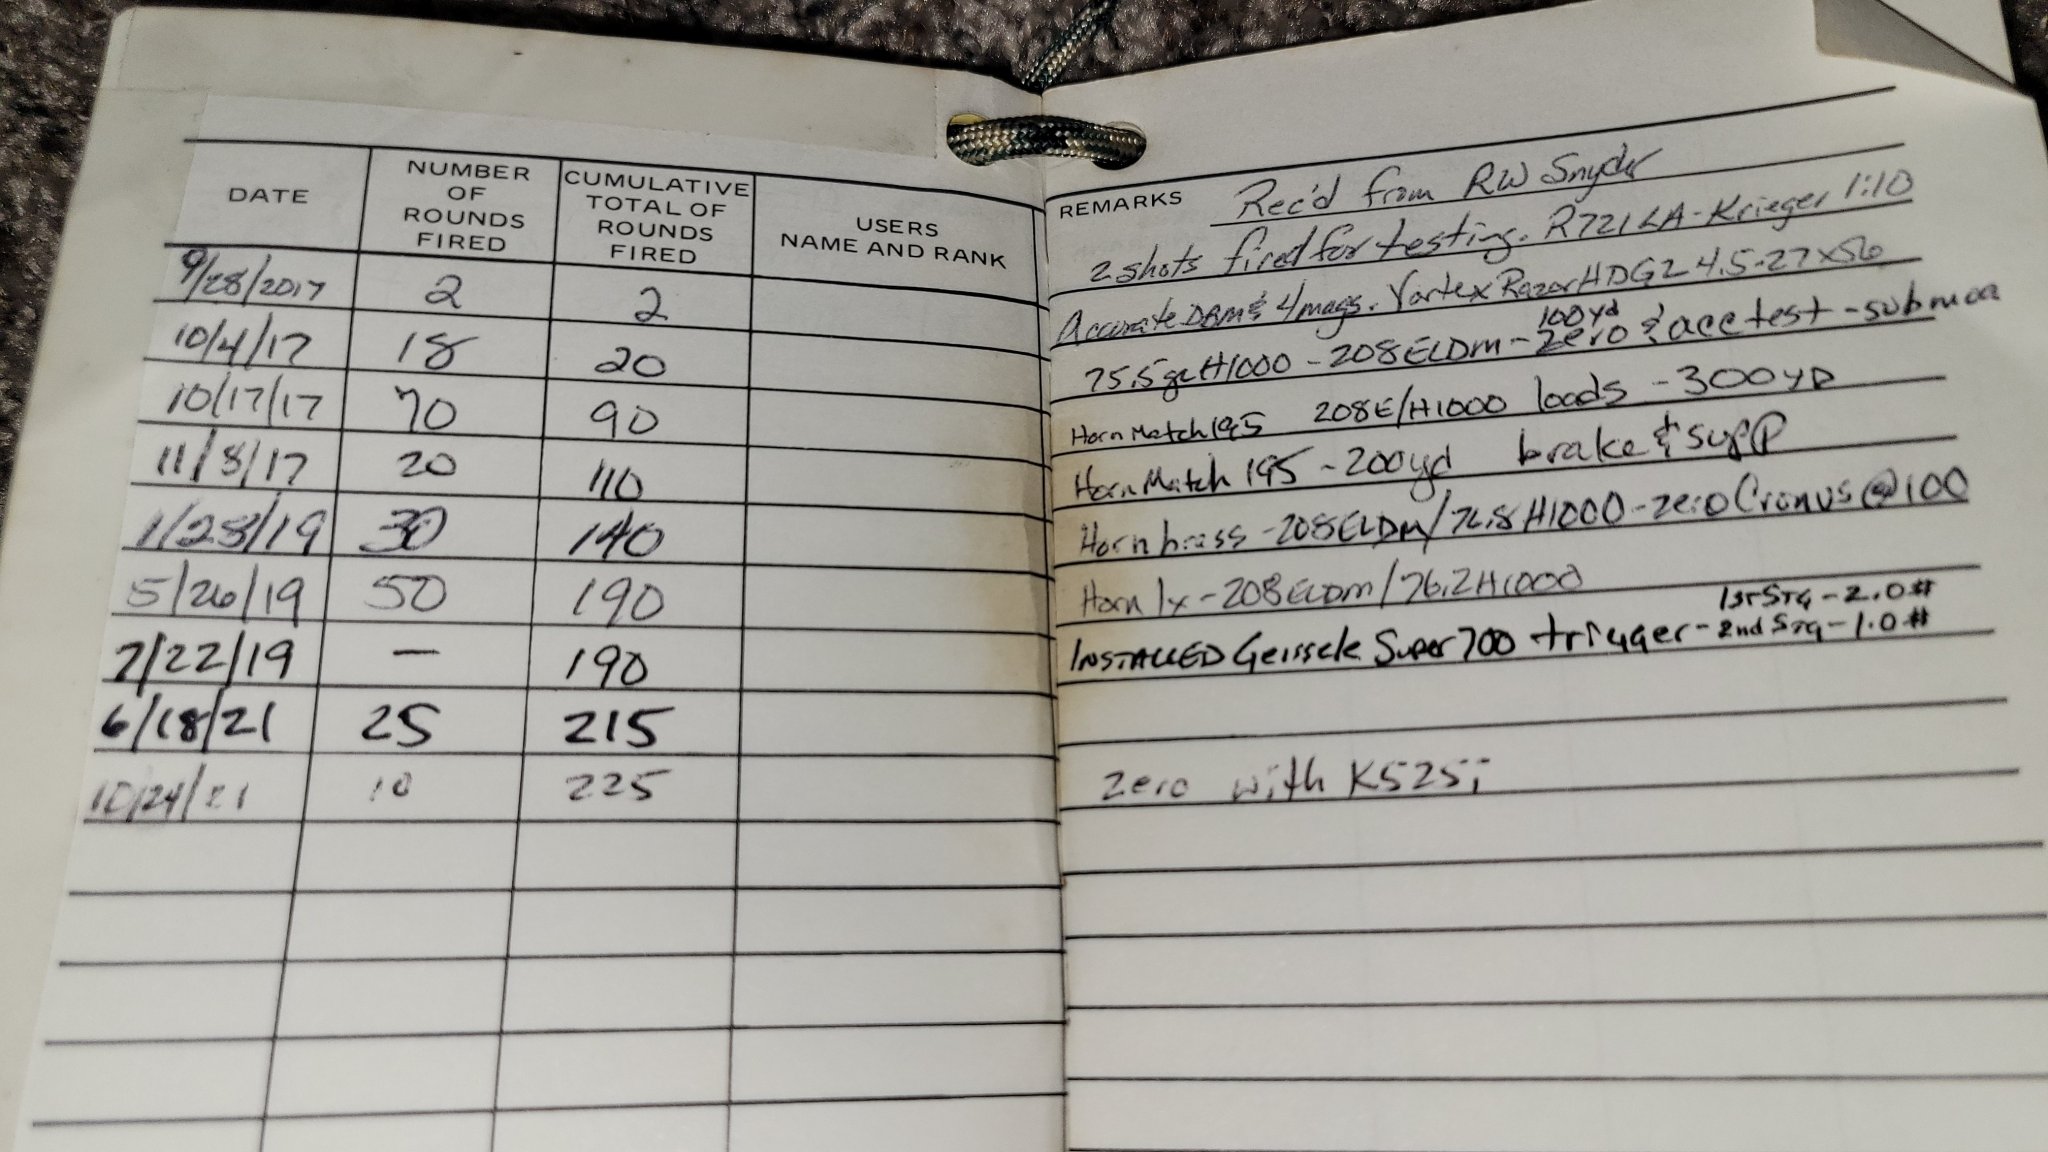 DATE NUMBER OF ROUNDS FIRED CUMULATIVE TOTAL OF ROUNDS FIRED USERS NAME AND RANK
REMARKS Rec'd from RW Snyder
2 shots fired for testing. R721 LA-Krieger 1:10
9/28/2017 2 2 Accurate DBM & 4 mags. Vortex Razor HD G2 4.5-27x56
100yd
10/4/17 18 20 75.5gr H1000 - 208 ELDM - zero & acc test - sub moa
10/17/17 70 90 Horn Match 195 208E/H1000 loads - 300 YD
11/8/17 20 110 Horn Match 195 - 200yd brake & supp
1/28/19 30 140 Horn brass - 208ELDM/76.8 H1000 - zero Cronus @ 100
5/26/19 50 190 Horn 1x - 208 ELDM/76.2 H1000
1st STG - 2.0#
7/22/19 — 190 INSTALLED Geissele Super 700 trigger - 2nd STG - 1.0#
6/18/21 25 215
10/24/21 10 225 Zero with K525i